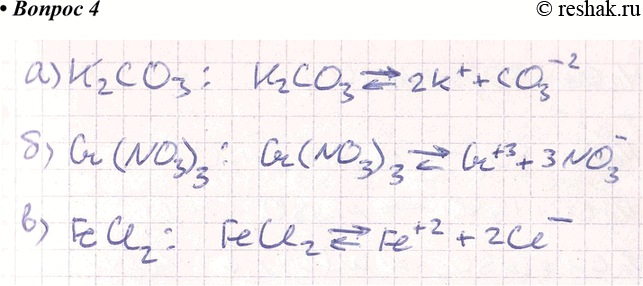 • Вопрос 4
© reshak.ru
а) K₂CO₃: K₂CO₃ ⇄ 2K⁺ + CO₃⁻²
б) Cr(NO₃)₃: Cr(NO₃)₃ ⇄ Cr⁺³ + 3NO₃⁻
в) FeCl₂: FeCl₂ ⇄ Fe⁺² + 2Cl⁻